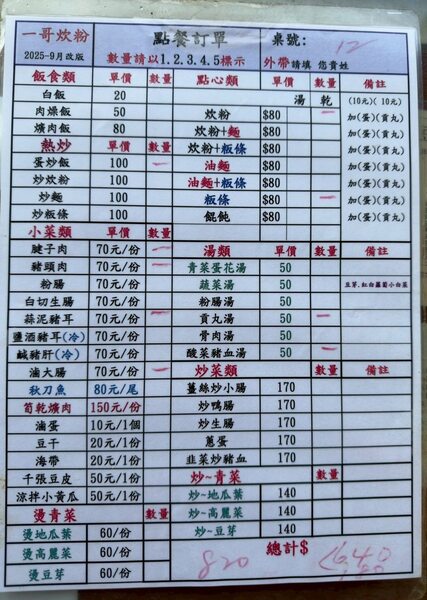 一哥炊粉 點餐訂單 桌號: 12
2025-9月改版 數量請以1.2.3.4.5標示 外帶請填 您貴姓
飯食類 單價 數量 點心類 單價 數量 備註
湯 乾 (10元)( 10元)
白飯 20
肉燥飯 50 炊粉 $80 一 加(蛋)(貢丸)
爌肉飯 80 炊粉+麵 $80 加(蛋)(貢丸)
熱炒 單價 數量 炊粉+粄條 $80 加(蛋)(貢丸)
蛋炒飯 100 一 油麵 $80 加(蛋)(貢丸)
炒炊粉 100 油麵+粄條 $80 加(蛋)(貢丸)
炒麵 100 粄條 $80 一 加(蛋)(貢丸)
炒粄條 100 餛飩 $80 加(蛋)(貢丸)
小菜類 單價 數量
腱子肉 70元/份 一 湯類 單價 數量 備註
豬頭肉 70元/份 一 青菜蛋花湯 50
粉腸 70元/份 蔬菜湯 50 豆芽.紅白蘿蔔小白菜
白切生腸 70元/份 粉腸湯 50
蒜泥豬耳 70元/份 一 貢丸湯 50 一
鹽酒豬耳(冷) 70元/份 骨肉湯 50
鹹豬肝(冷) 70元/份 酸菜豬血湯 50 一
滷大腸 70元/份 一 炒菜類 單價 數量 備註
秋刀魚 80元/尾 薑絲炒小腸 170
筍乾爌肉 150元/份 炒鴨腸 170
滷蛋 10元/1個 炒生腸 170
豆干 20元/1份 蔥蛋 170
海帶 20元/1份 韭菜炒豬血 170
千張豆皮 50元/1份 炒~青菜 數量
涼拌小黃瓜 50元/1份 炒~地瓜葉 140
燙青菜 數量 炒~高麗菜 140
燙地瓜葉 60/份 炒~豆芽 140
燙高麗菜 60/份 總計$
燙豆芽 60/份 820 640